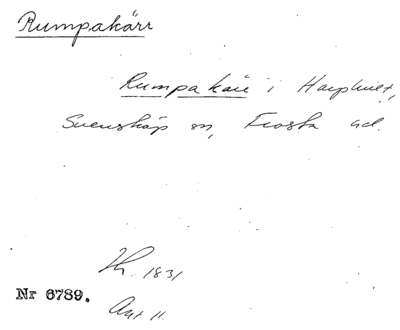 Rumpakärr
Rumpakärr i Harphult,
Svensköp sn, Frosta hd.
Lh. 1831
Nr 6789.
Avt 11.